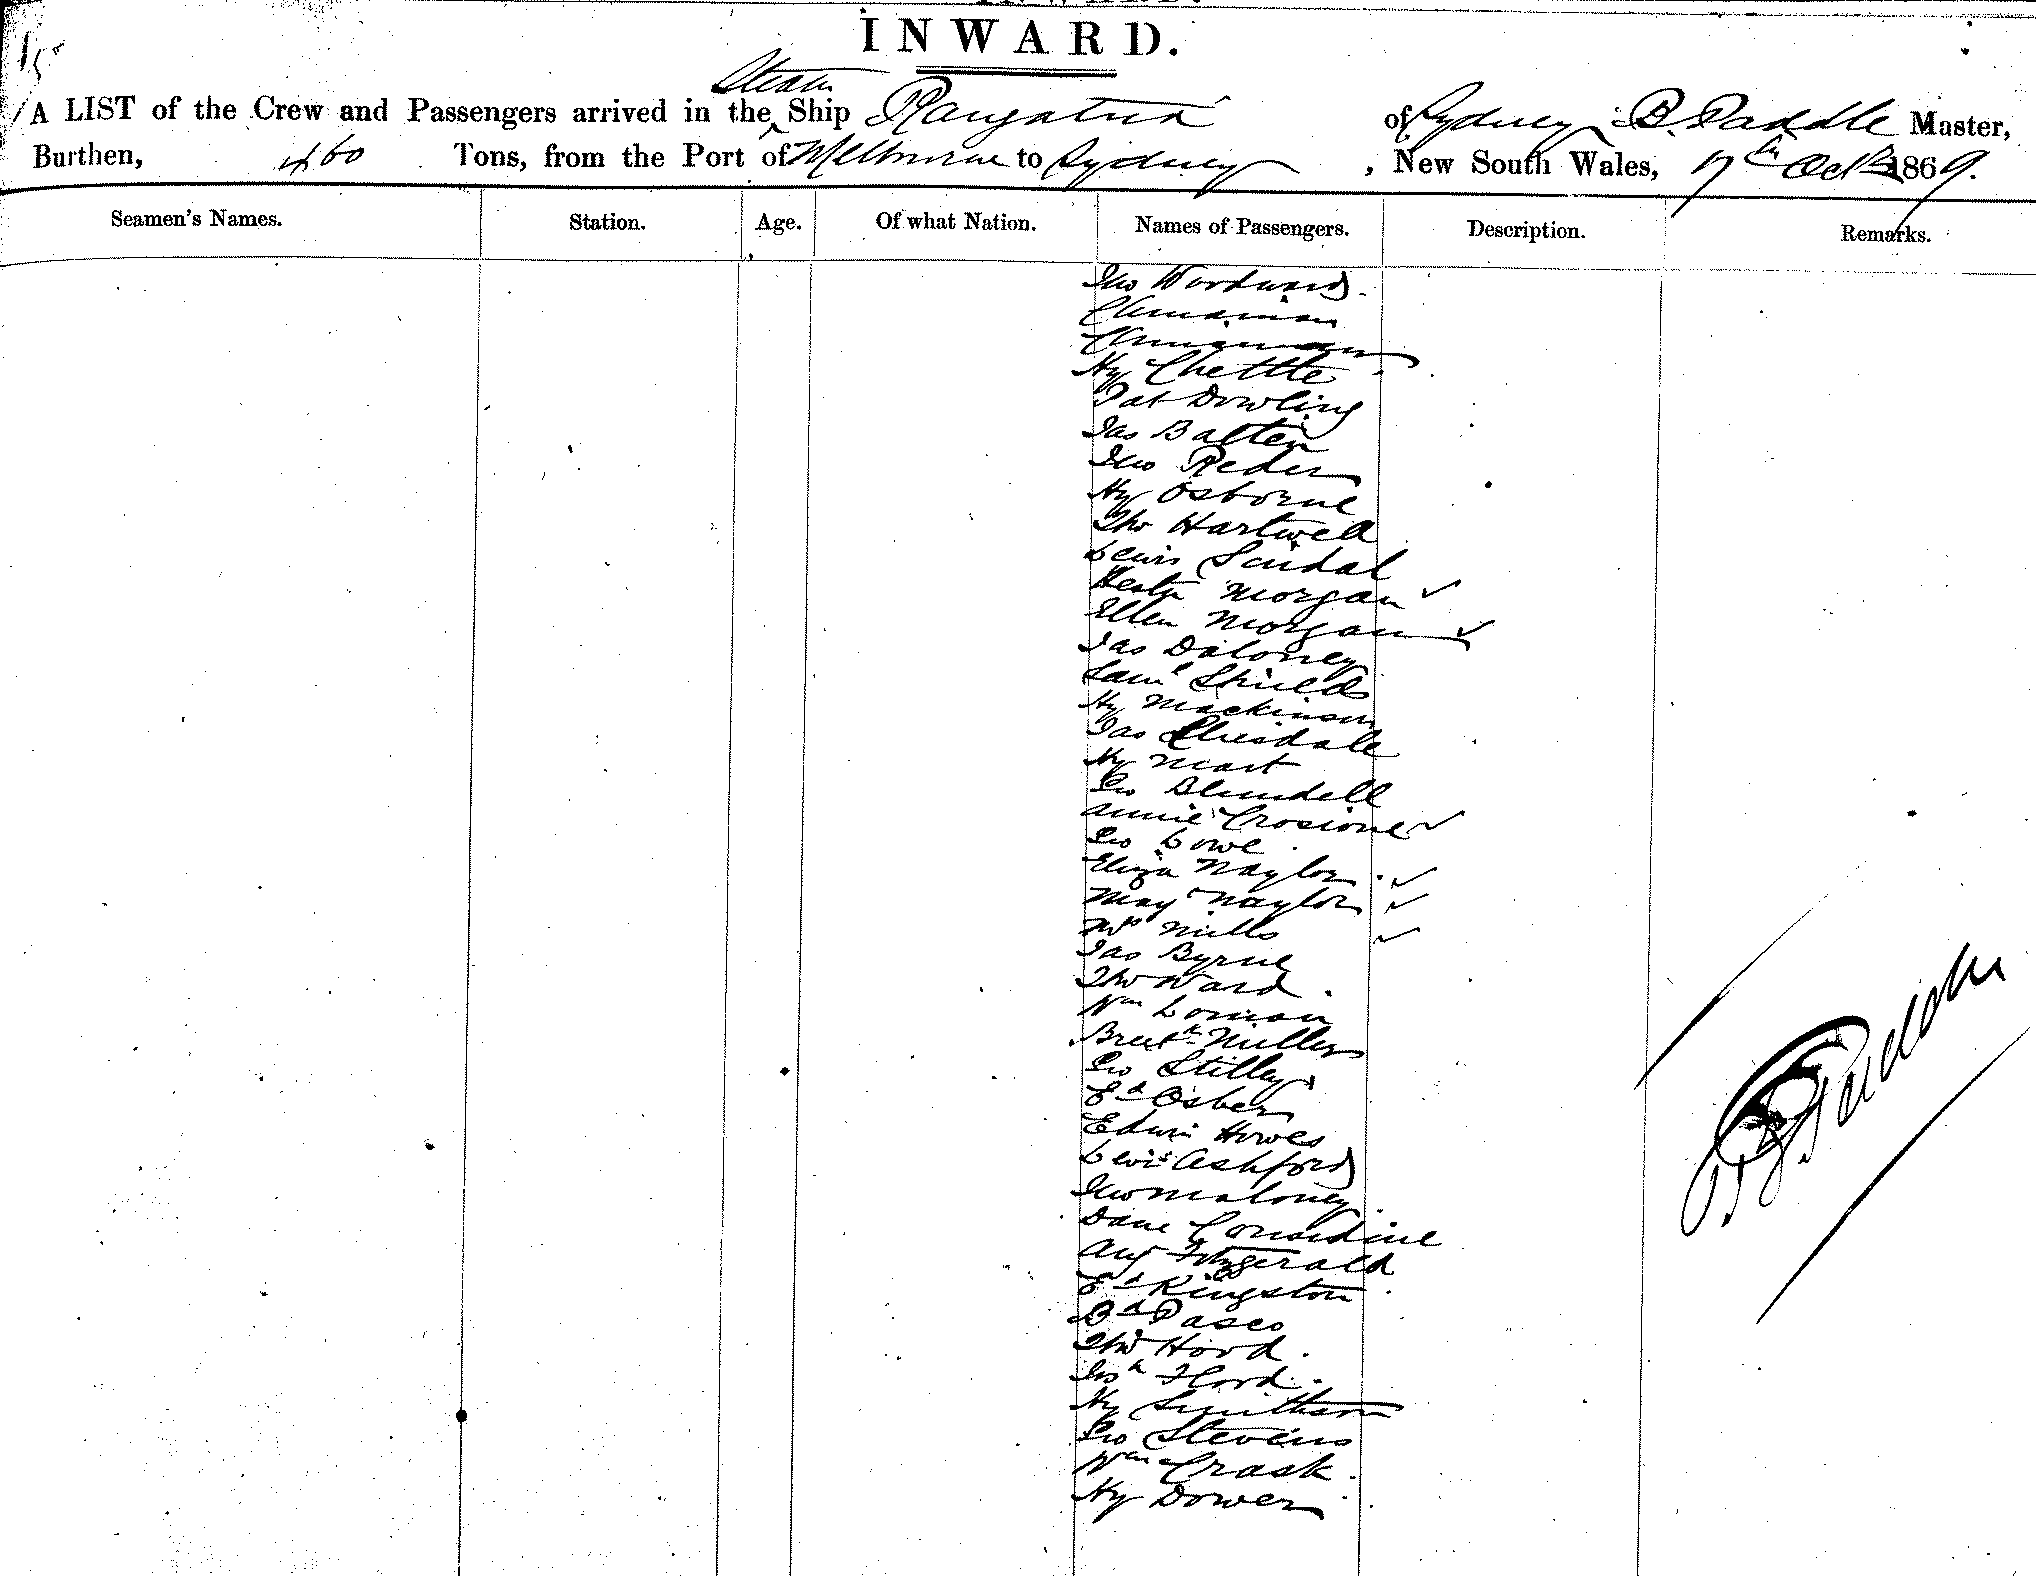 INWARD.
15
Steam
A LIST of the Crew and Passengers arrived in the Ship Rangatira of Sydney B. Paddle Master,
Burthen, 460 Tons, from the Port of Melbourne to Sydney, New South Wales, 7th Octr 1869.
Seamen's Names. Station. Age. Of what Nation. Names of Passengers. Description. Remarks.
Jno Woodward.
Chinaman
Chinaman
Hy Chettle
Pat Dowling
Jas Balten
Jno Reder
Hy Osborne
Tho Hartwell
Lewis
Morgan
Ellen Morgan
Jas Daloney
Saml Shields
Hy Mackinson
Jas
Hy Mart
Geo Blundell
Annie Crosione
Geo Lowe
Eliza Naylor
May Naylor
Mrs Mills
Jas Byrne
Tho Ward.
Wm Loman
Miller
Geo Stilley
Ed Osber
Edwin Howes
Lewis Ashford
Jno Maloney
Dane Considine
Aug Fitzgerald
Ed Kingston
Bd Pasco
Tho Hood.
Jos Flood.
Hy Smithson
Geo Stevens
Wm Crask.
Hy Dower
B. Paddle